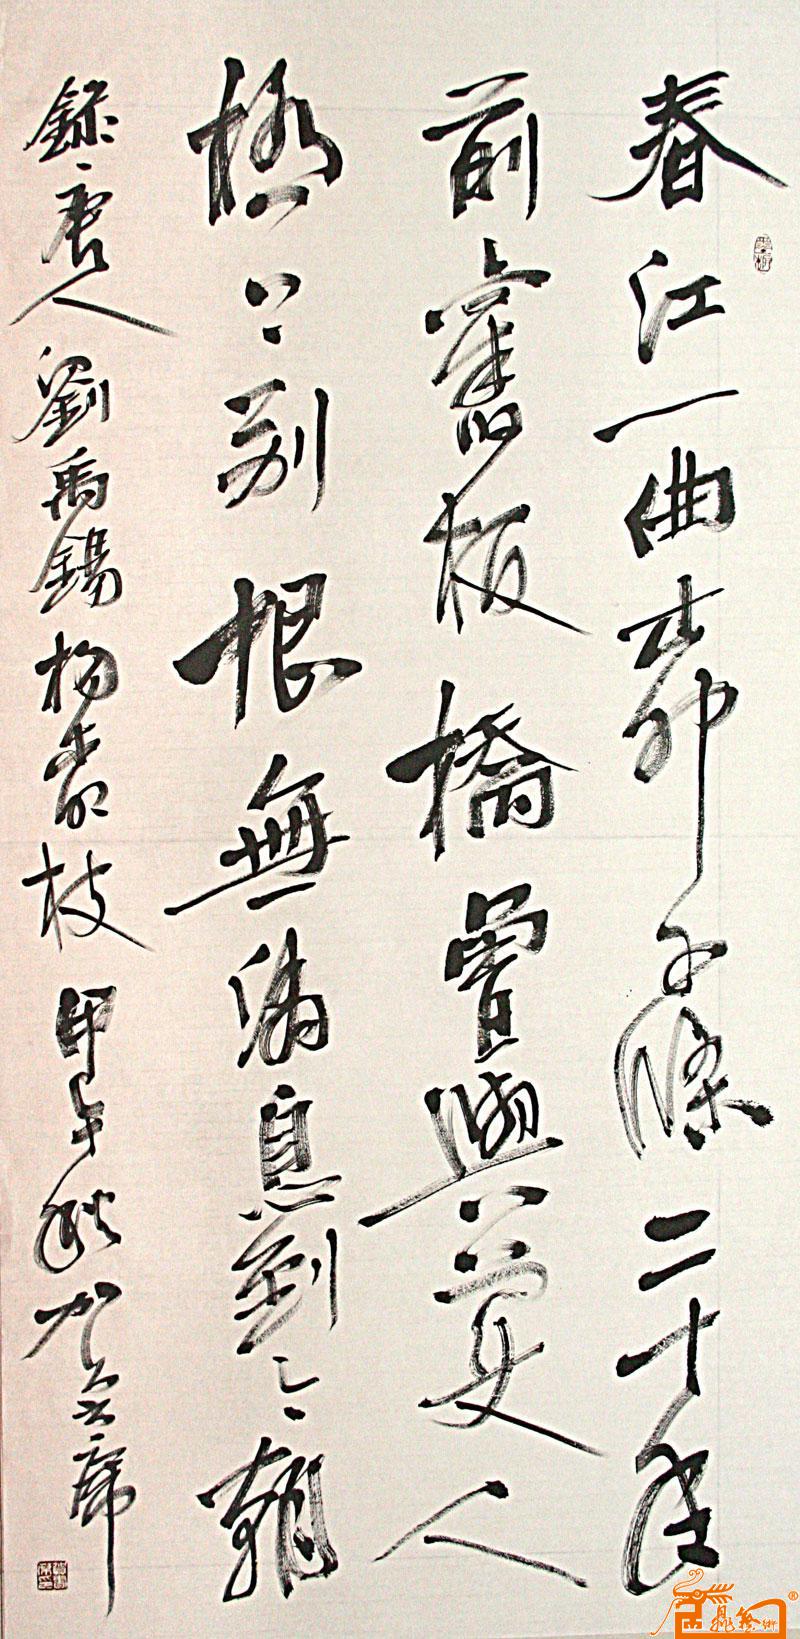 春江一曲柳千條二十年
前舊板橋曾與美人
橋上別恨無消息到今朝
錄唐人劉禹錫楊柳枝甲午秋